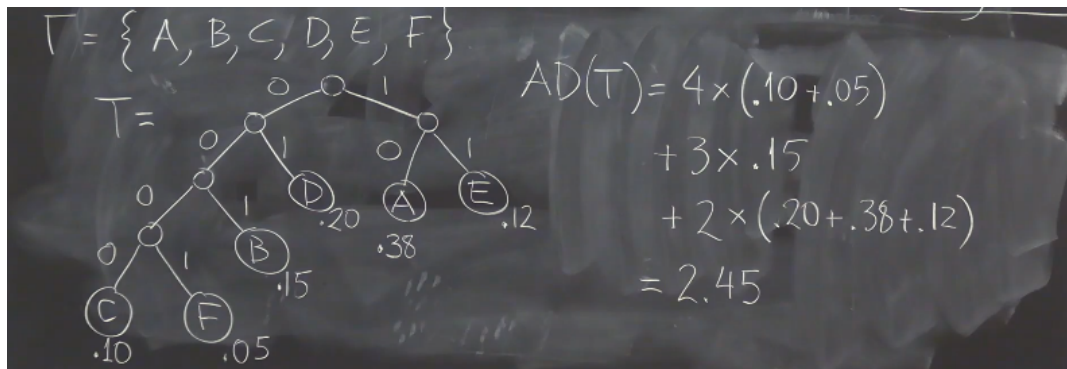 Γ = { A, B, C, D, E, F }
T =
0 1
0 1 0 1
0 1 D A E
.20 .38 .12
0 1 B
.15
C F
.10 .05
AD(T) = 4 × (.10 + .05)
+ 3 × .15
+ 2 × (.20 + .38 + .12)
= 2.45